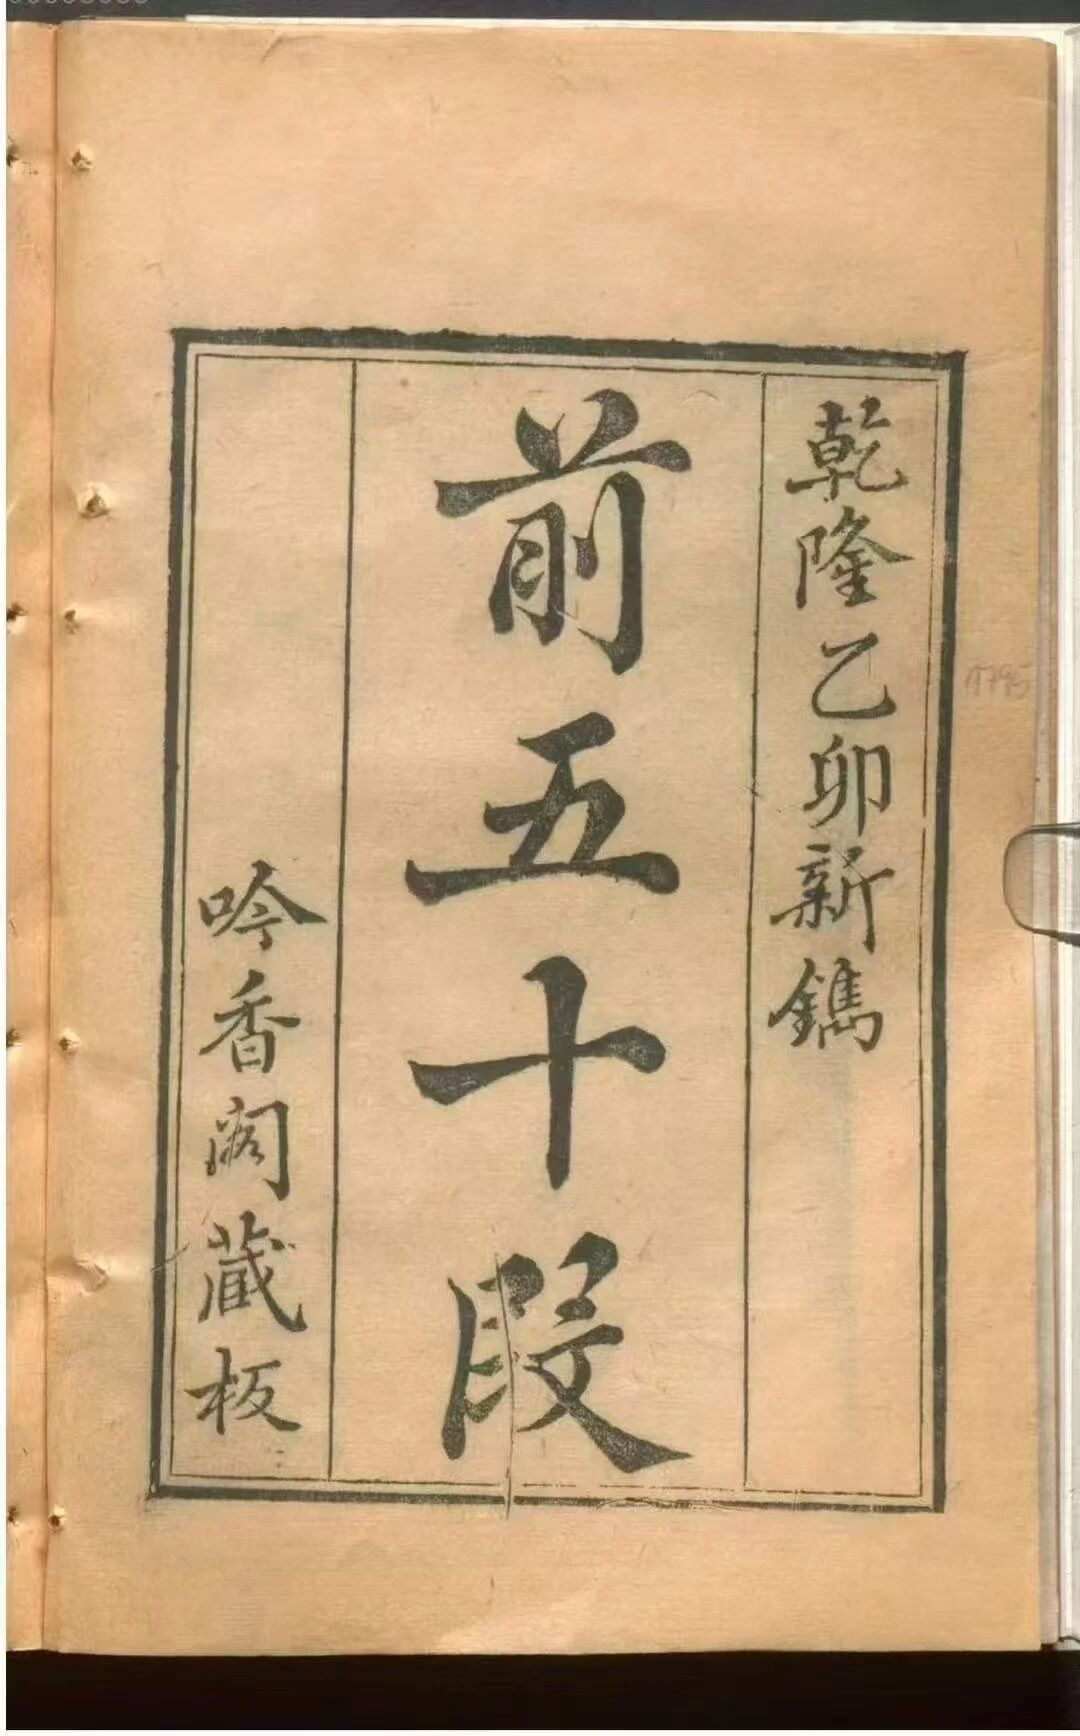 乾隆乙卯新鐫
前五十段
吟香閣藏板
1795